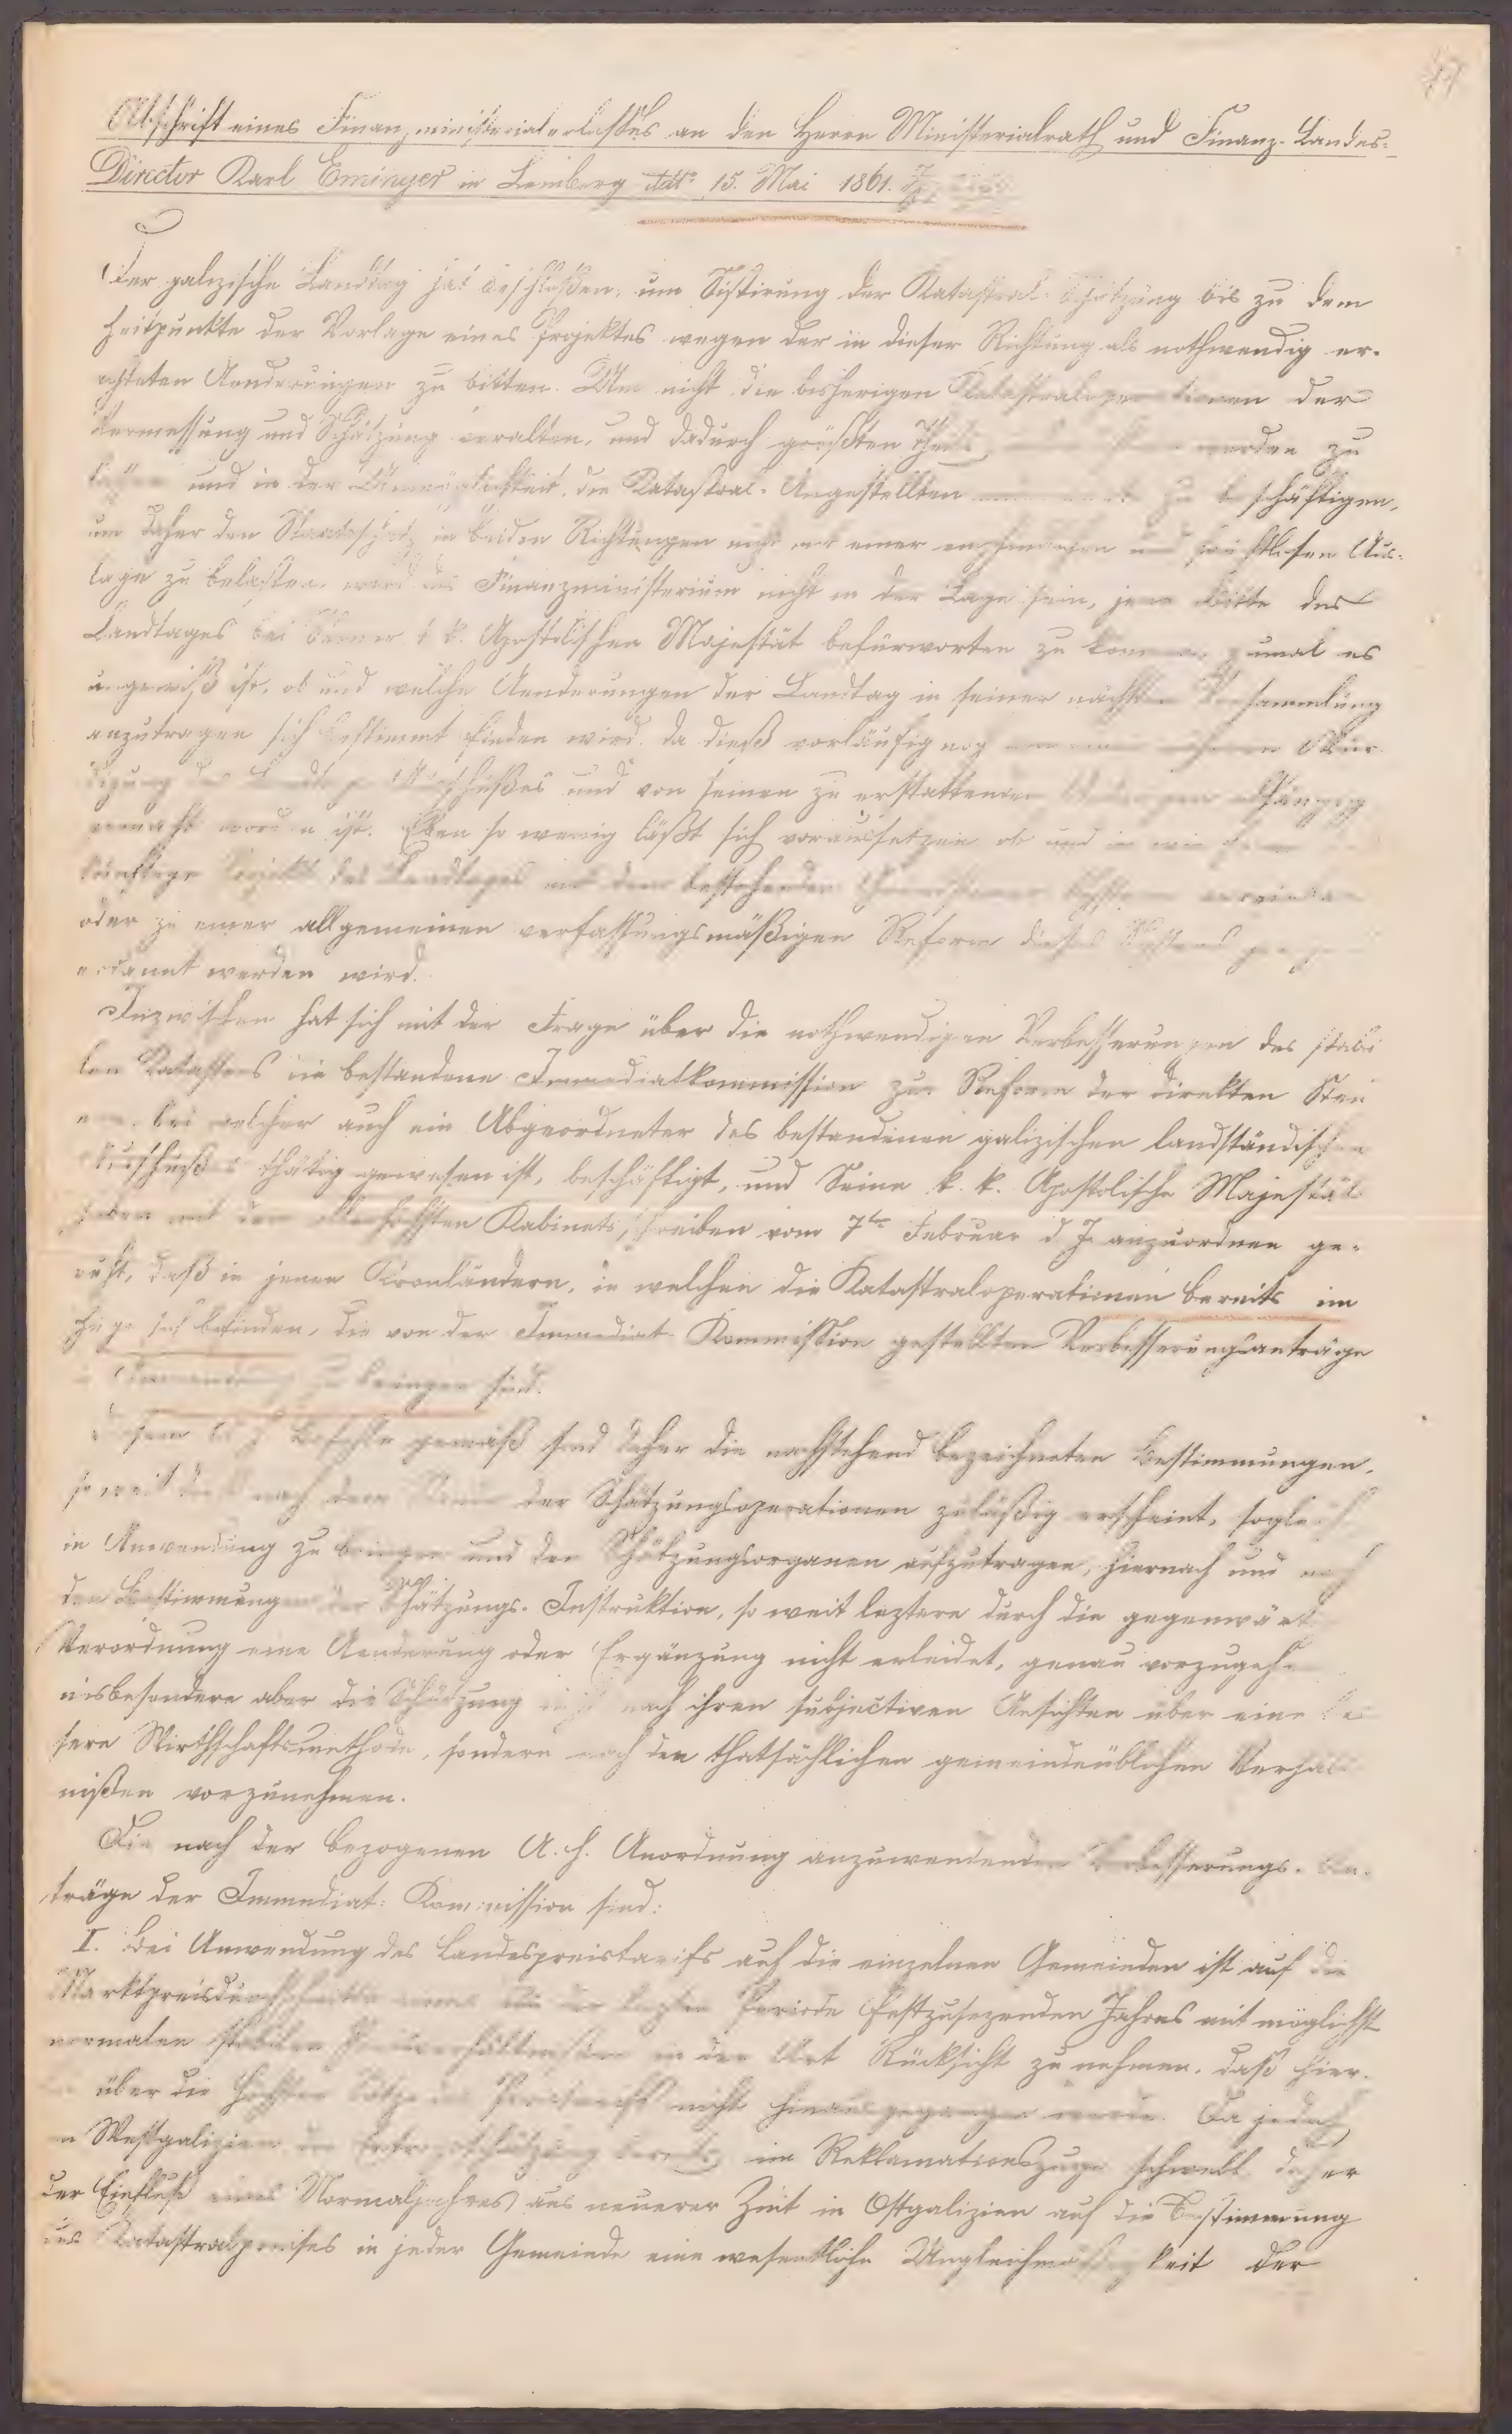 Abschrift eines Finanzministerialerlaßes an den Herrn Ministerialrath und Finanz-Landes-
Director Karl Eminger in Lemberg ddto 15. Mai 1861.
Der galizische Landtag hat beschloßen, um Sistirung der Katastral-Schätzung bis zu dem
Zeitpunkte der Vorlage eines Projektes wegen der in dieser Richtung als nothwendig er-
achteten Aenderungen zu bitten. Um nicht die bisherigen Katastraloperationen der
Vermessung und Schätzung veralten, und dadurch größten Theils werden zu
laßen und in der Unmöglichkeit, die Katastral-Angestellten zu beschäftigen,
um daher den Staatsschatz in beiden Richtungen nicht mit einer und fruchtlosen Aus-
lage zu belasten, wird das Finanzministerium nicht in der Lage sein, jene Bitte des
Landtages bei Seiner k. k. Apostolischen Majestät befürworten zu können, zumal es
ungewiß ist, ob und welche Aenderungen der Landtag in seiner nächsten Versammlung
anzutragen sich bestimmt finden wird, da dieß vorläufig noch Wür-
digung des Landtags Ausschußes und von seinen zu erstattenden Anträgen abhängig
gemacht worden ist. Eben so wenig läßt sich voraussetzen ob und in wie ferne
künftige Projekt des Landtages mit dem bestehenden Systeme vereinbar
oder zu einer allgemeinen verfassungsmäßigen Reform dieses Systems
erkannt werden wird.
Inzwischen hat sich mit der Frage über die nothwendigen Verbesserungen des stabi
len Katasters die bestandene Immediatkommission zur Reform der direkten Steu
ern, bei welcher auch ein Abgeordneter des bestandenen galizischen landständischen
Ausschußes thätig gewesen ist, beschäftigt, und Seine k. k. Apostolische Majestät
haben mit dem allerhöchsten Kabinetsschreiben vom 7ten Februar d. J. anzuordnen ge-
ruht, daß in jenen Kronländern, in welchen die Katastraloperationen bereits im
Zuge sich befinden, die von der Immediat-Kommission gestellten Verbesserungsanträge
in Anwendung zu bringen sind.
Diesem A. h. Befehle gemäß sind daher die nachstehend bezeichneten Bestimmungen,
so weit dieß nach dem Stande der Schätzungsoperationen zuläßig erscheint, sogleich
in Anwendung zu bringen und den Schätzungsorganen aufzutragen, hiernach und nach
den Bestimmungen der Schätzungs-Instruktion, so weit leztere durch die gegenwärt
Verordnung eine Aenderung oder Ergänzung nicht erleidet, genau vorzugehen
insbesondere aber die Schätzung nicht nach ihren subjectiven Ansichten über eine bes
sere Wirthschaftsmethode, sondern nach den thatsächlichen gemeindeüblichen Verhält
nißen vorzunehmen.
Die nach der bezogenen A. h. Anordnung anzuwendenden Verbesserungs-An-
träge der Immediat-Kommission sind:
I. Bei Anwendung des Landespreistarifs auf die einzelnen Gemeinden ist auf die
Marktpreisdurchschnitte eines aus der lezten Periode festzusezenden Jahres mit möglichst
normalen stabilen Preisverhältnissen in der Art Rücksicht zu nehmen, daß hier-
bei über die höchsten Sätze des Preistarifs nicht hinausgegangen werde. Da jedoch
in Westgalizien die Ertragsschätzung bereits im Reklamationszuge schwebt, daher
der Einfluß eines Normaljahres aus neuerer Zeit in Ostgalizien auf die Bestimmung
des Katastralpreises in jeder Gemeinde eine wesentliche Ungleichmäßigkeit der